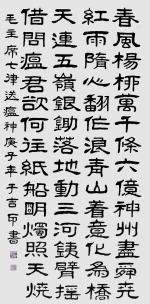 春風楊柳萬千條六億神州盡舜堯
紅雨隨心翻作浪青山着意化為橋
天連五嶺銀鋤落地動三河鐵臂搖
借問瘟君欲何往紙船明燭照天燒
毛主席七律送瘟神庚子年于吉書